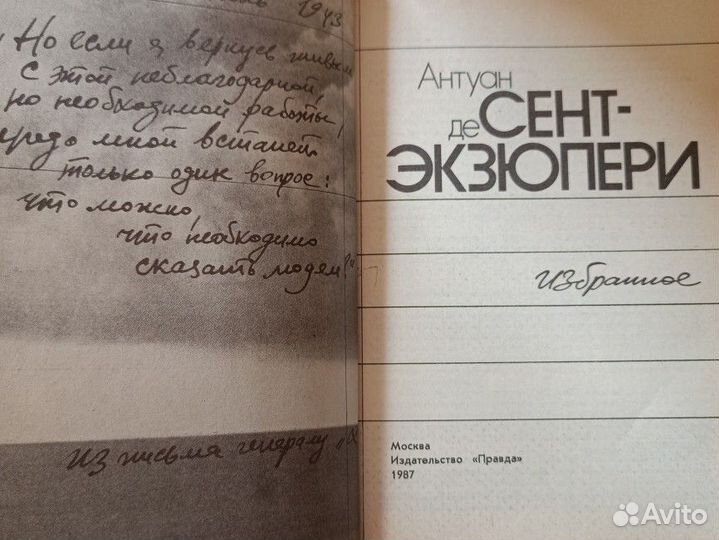 1943
Но если я вернусь живым
с этой неблагодарной,
но необходимой работы,
передо мной встанет
только один вопрос:
что можно,
что необходимо
сказать людям?"
Из письма генералу „Х
Антуан
де СЕНТ-
ЭКЗЮПЕРИ
Избранное
Москва
Издательство «Правда»
1987
Avito